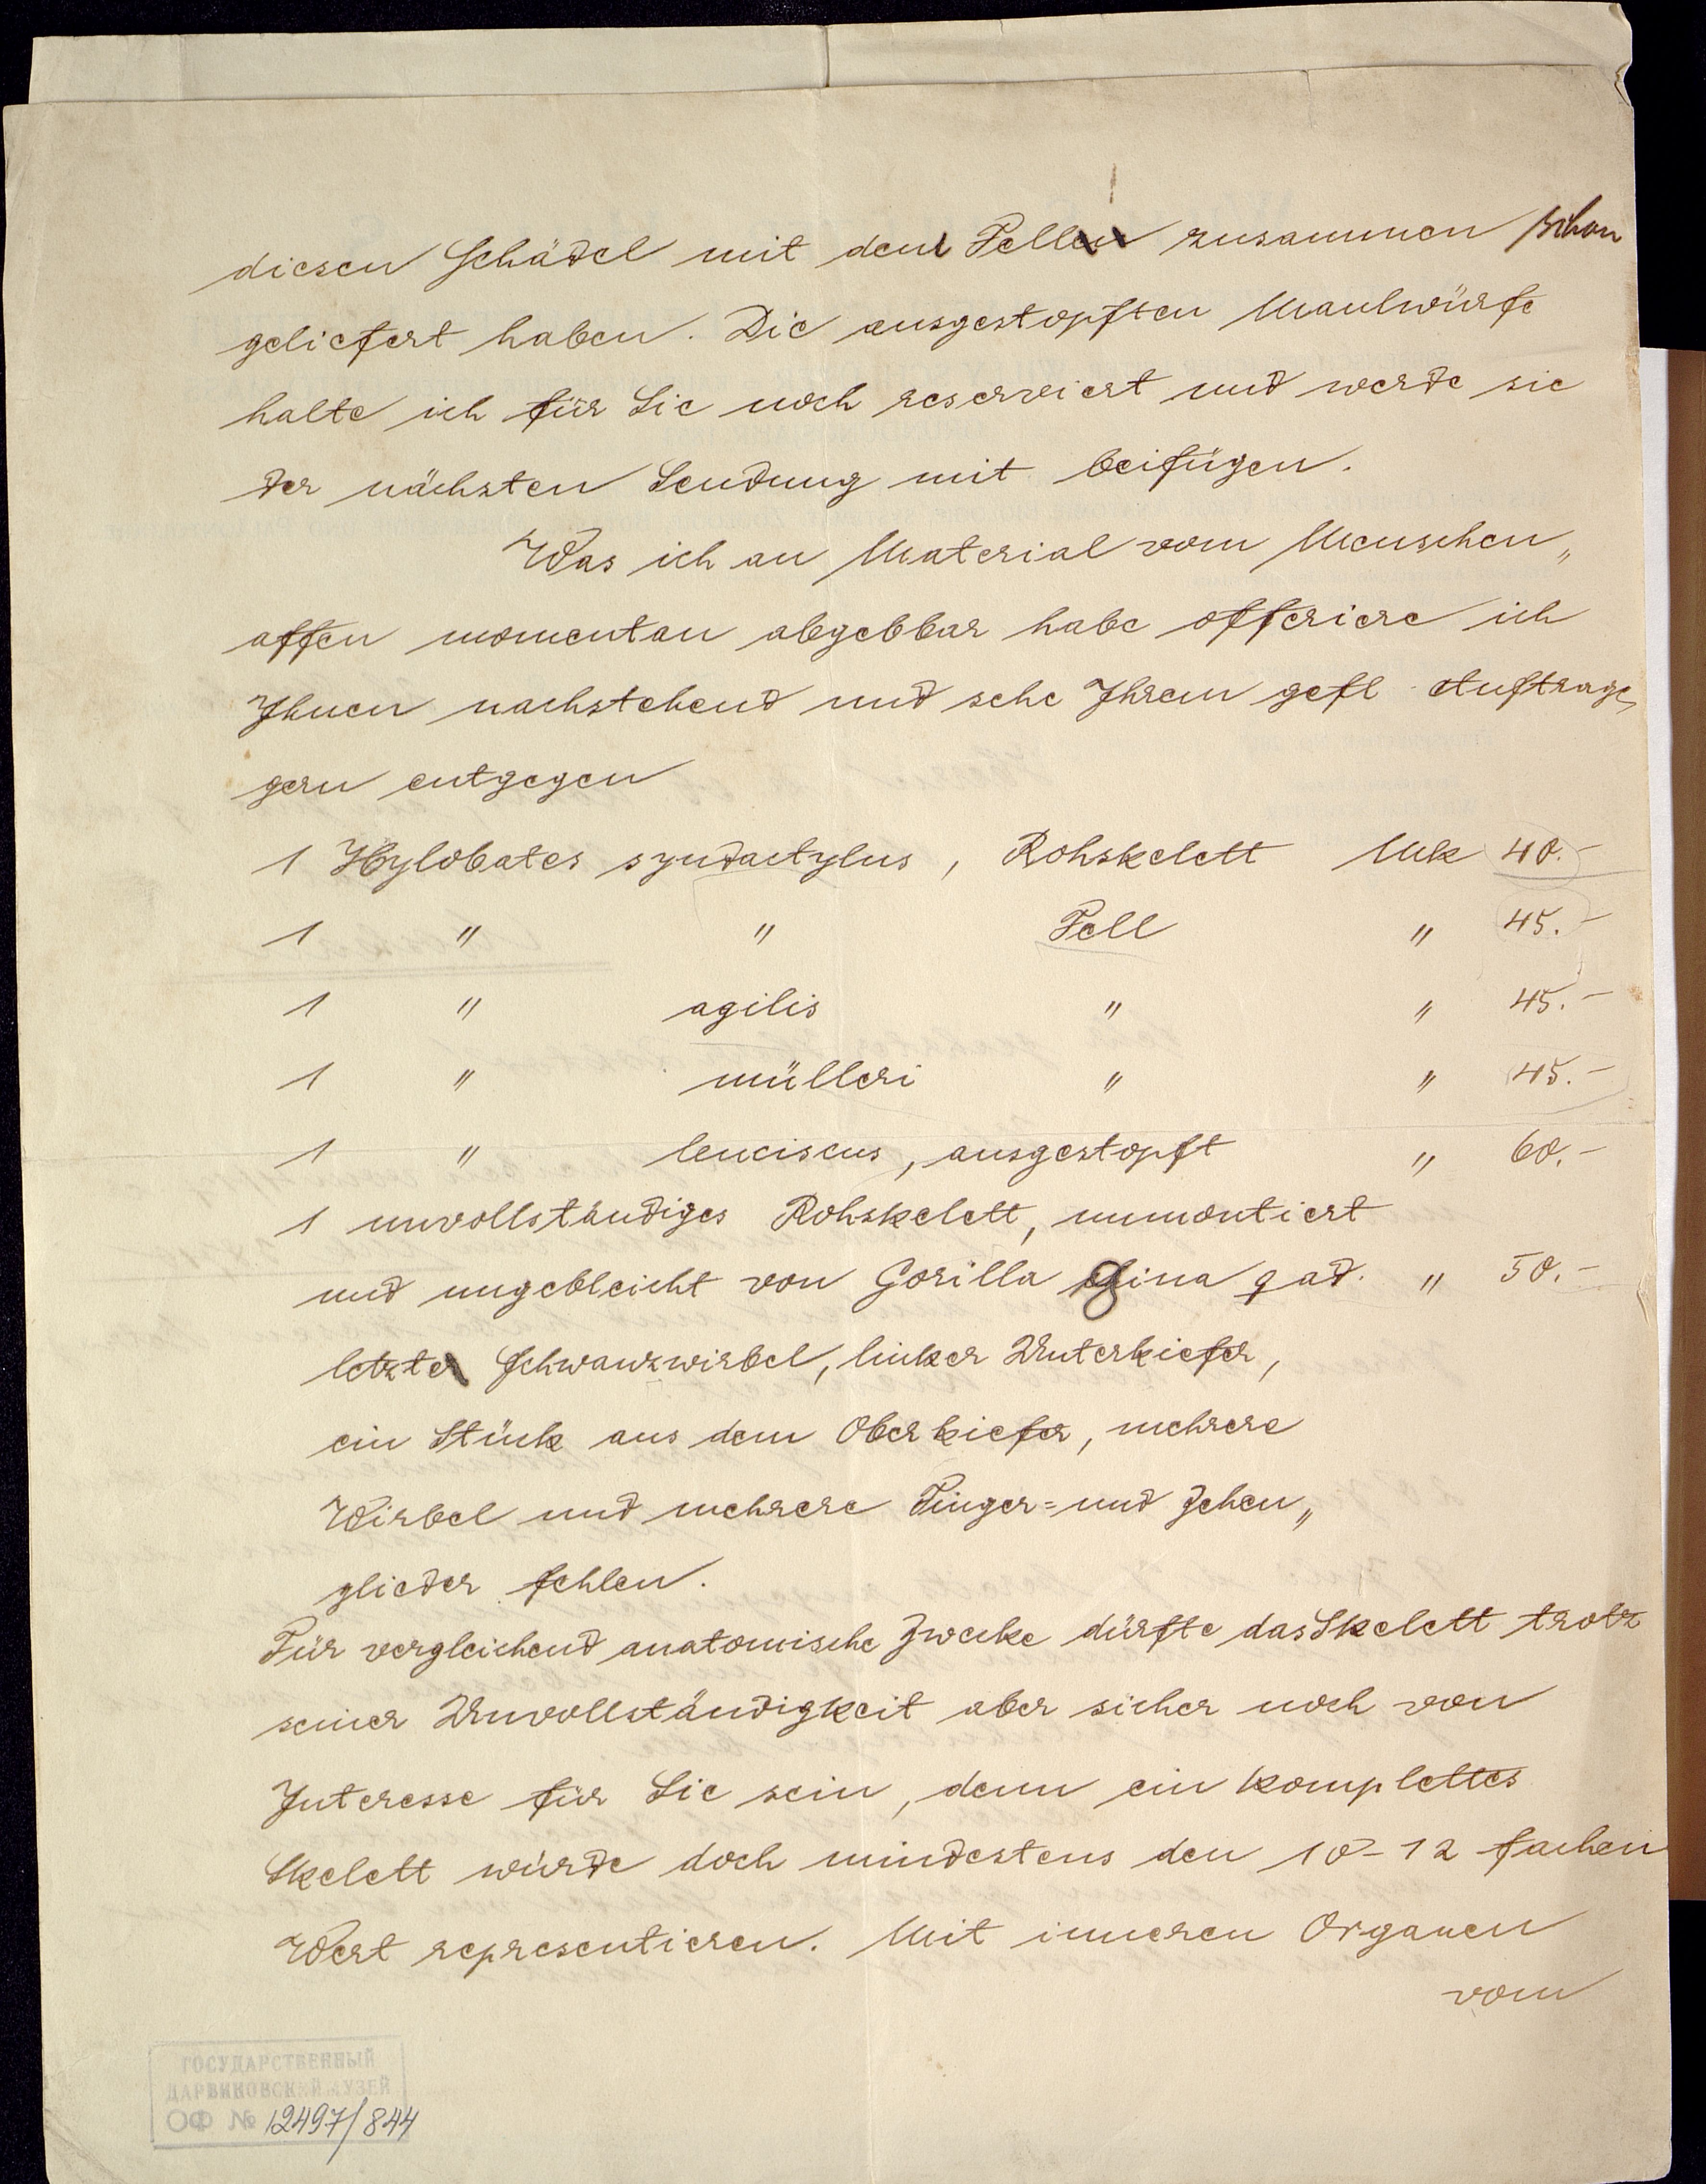 diesen Schädel mit dem Fell zusammen schon
geliefert haben. Die ausgestopften Maulwürfe
halte ich für Sie noch reserviert und werde sie
der nächsten Sendung mit beifügen.
Was ich an Material vom Menschen„
affen momentan abgebbar habe offeriere ich
Ihnen nachstehend und sehe Ihrem gefl. Auftrage
gern entgegen
1 Hylobates syndactylus, Rohskelett Mk 40.-
1 " " Fell " 45.-
1 " agilis " " 45.-
1 " mülleri " " 45.-
1 " leuciscus, ausgestopft " 60.-
1 unvollständiges Rohskelett, unmontiert
und ungebleicht von Gorilla gina ♀ ad. " 50.-
letzter Schwanzwirbel, linker Unterkiefer,
ein Stück aus dem Oberkiefer, mehrere
Wirbel und mehrere Finger= und Zehen„
glieder fehlen.
Für vergleichend anatomische Zwecke dürfte das Skelett trotz
seiner Unvollständigkeit aber sicher noch von
Interesse für Sie sein, denn ein komplettes
Skelett würde doch mindestens den 10-12 fachen
Wert represententieren. Mit inneren Organen
vom
ГОСУДАРСТВЕННЫЙ
ДАРВИНОВСКИЙ МУЗЕЙ
ОФ № 12497/844